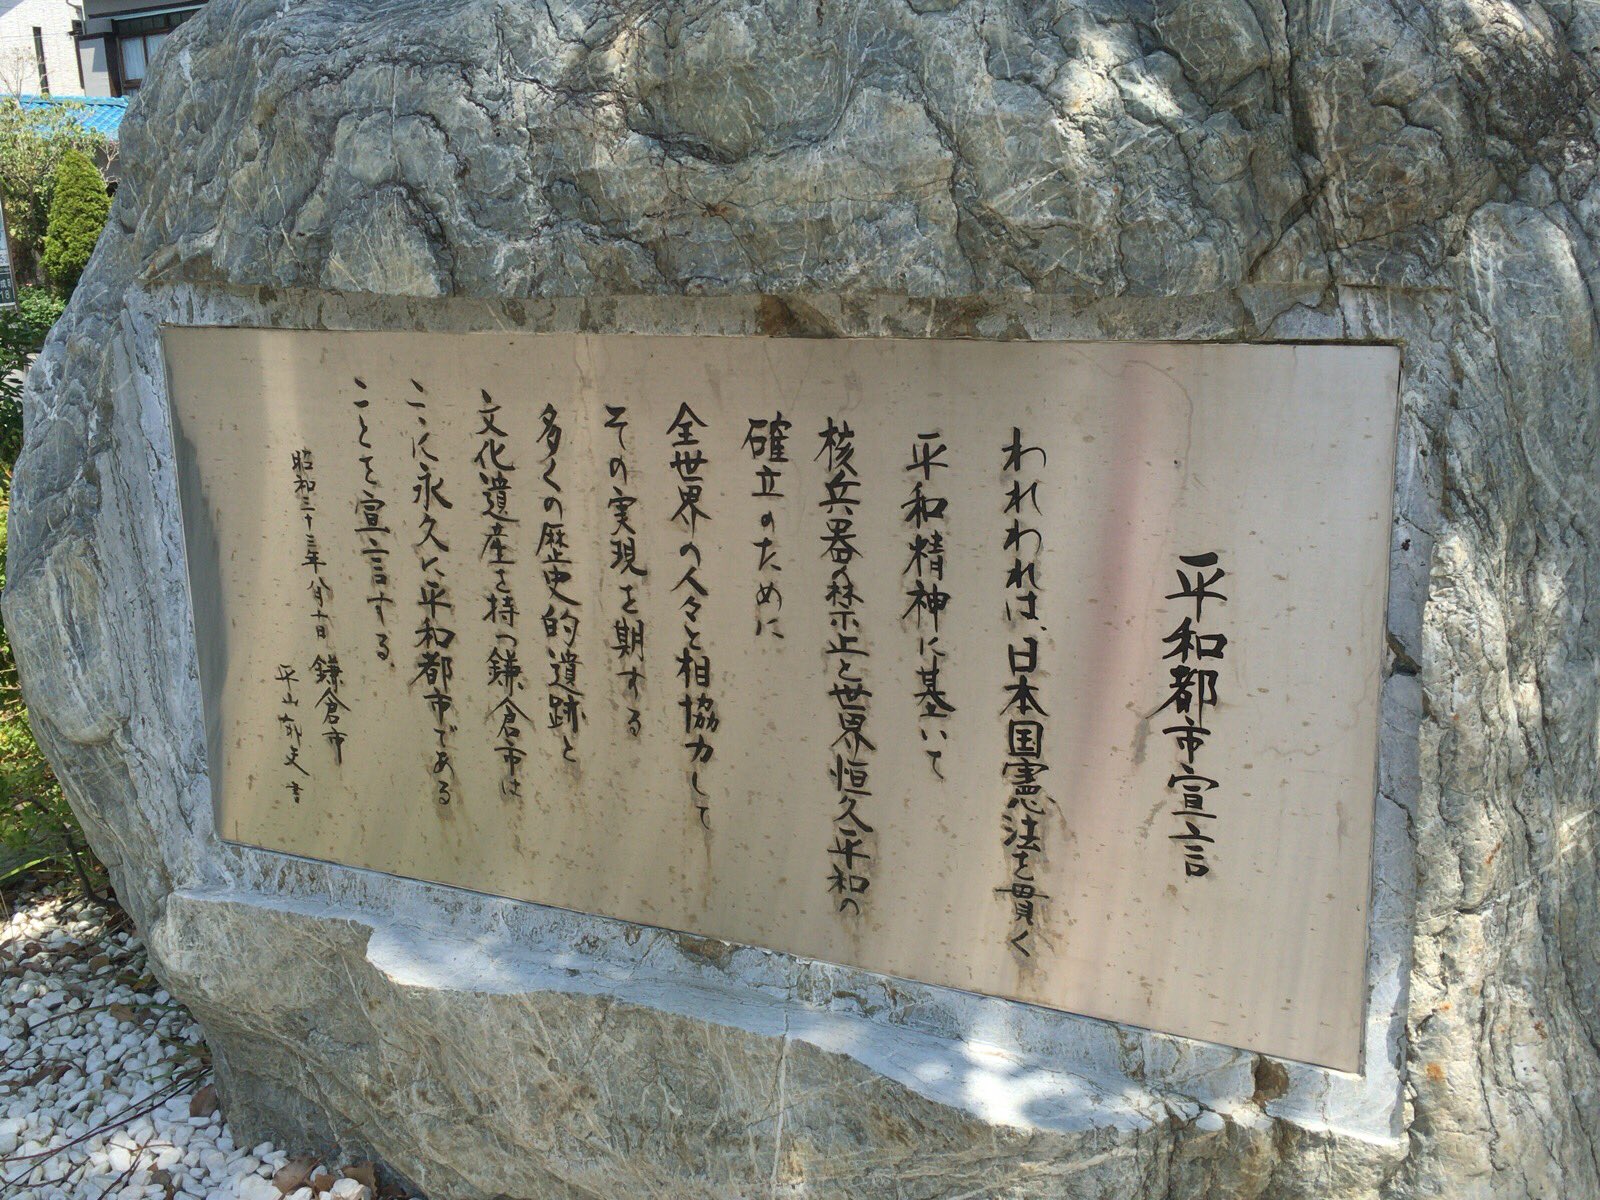 平和都市宣言
われわれは、日本国憲法を貫く
平和精神に基いて
核兵器の禁止と世界恒久平和の
確立のために
全世界の人々と相協力して
その実現を期する
多くの歴史的遺跡と
文化遺産を持つ鎌倉市は
ここに永久に平和都市である
ことを宣言する
昭和三十三年八月十日 鎌倉市
平山郁夫 書